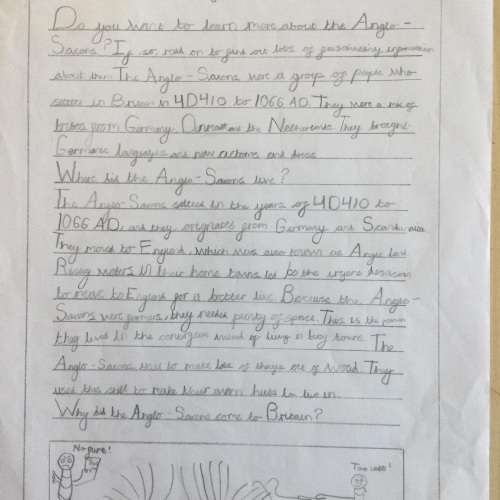 Do you want to learn more about the Anglo -
Saxons? If so, read on to find out lots of fascinating information
about them. The Anglo - Saxons were a group of people who
settled in Britain in 4D410 to 1066 AD. They were a mix of
tribes from Germany, Denmark and the Netherlands. They brought
Germanic languages and new customs and dress
Where did the Anglo - Saxons live?
The Anglo - Saxons settled in the years of 4D410 to
1066 AD, and they originates from Germany and Scandinavia
They moved to England, which was also known as Angle land
Rising waters in their home towns led to the urgent
to move to England for a better live. Because the Anglo -
Saxons were farmers, they needed plenty of space. This is the reason
they lived in the instead of living in busy towns. The
Anglo - Saxons used to make lots of things out of wood. They
used this skill to make their own huts to live in.
Why did the Anglo - Saxons come to Britain?
No pure!
Too late!